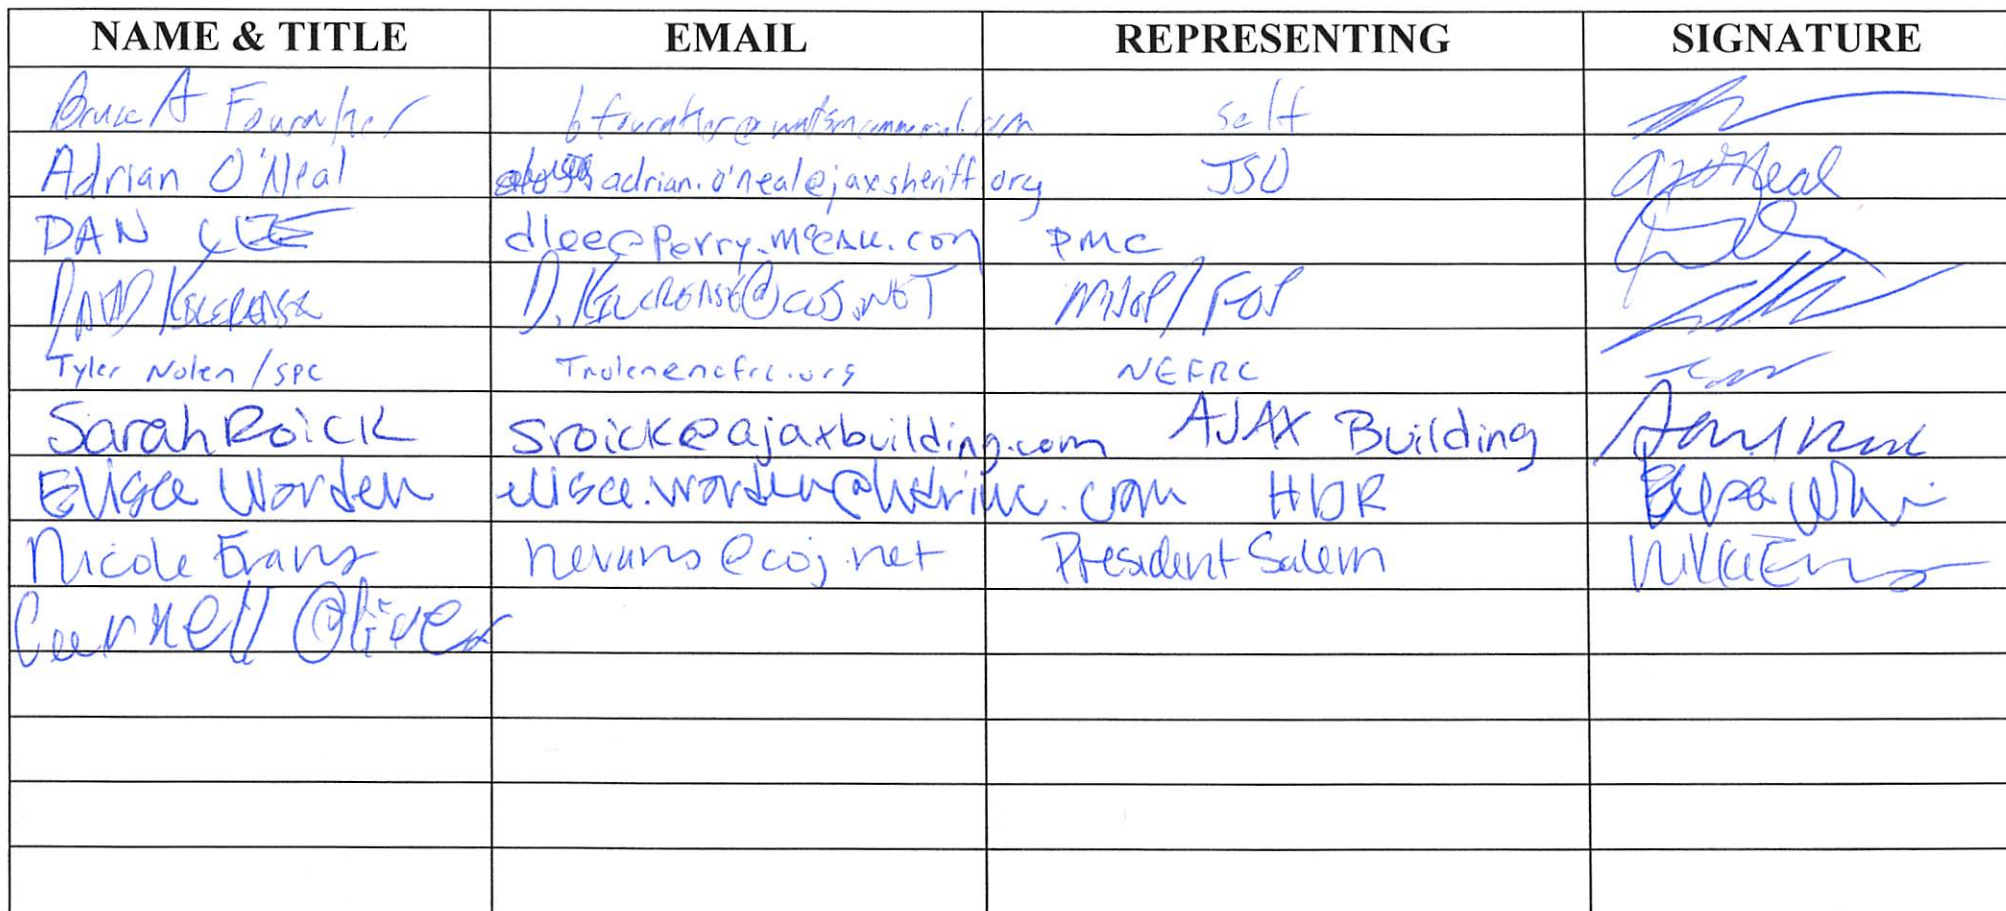 NAME & TITLE EMAIL REPRESENTING SIGNATURE
Bruce A Fournier self
Adrian O'Neal adrian.o'neal@jaxsheriff.org JSO
DAN LEE dlee@Perry-McCall.com PMC
DAVID KILCREASE D.KILCREASE@COJ.NET /FOP
Tyler Nolen /SPC Tnolen@nefrc.org NEFRC
Sarah Roick sroick@ajaxbuilding.com AJAX Building
Elisa Worden elisa.worden@hdrinc.com HDR
Nicole Evans nevans@coj.net President Salem Nikki Evans
Oliver